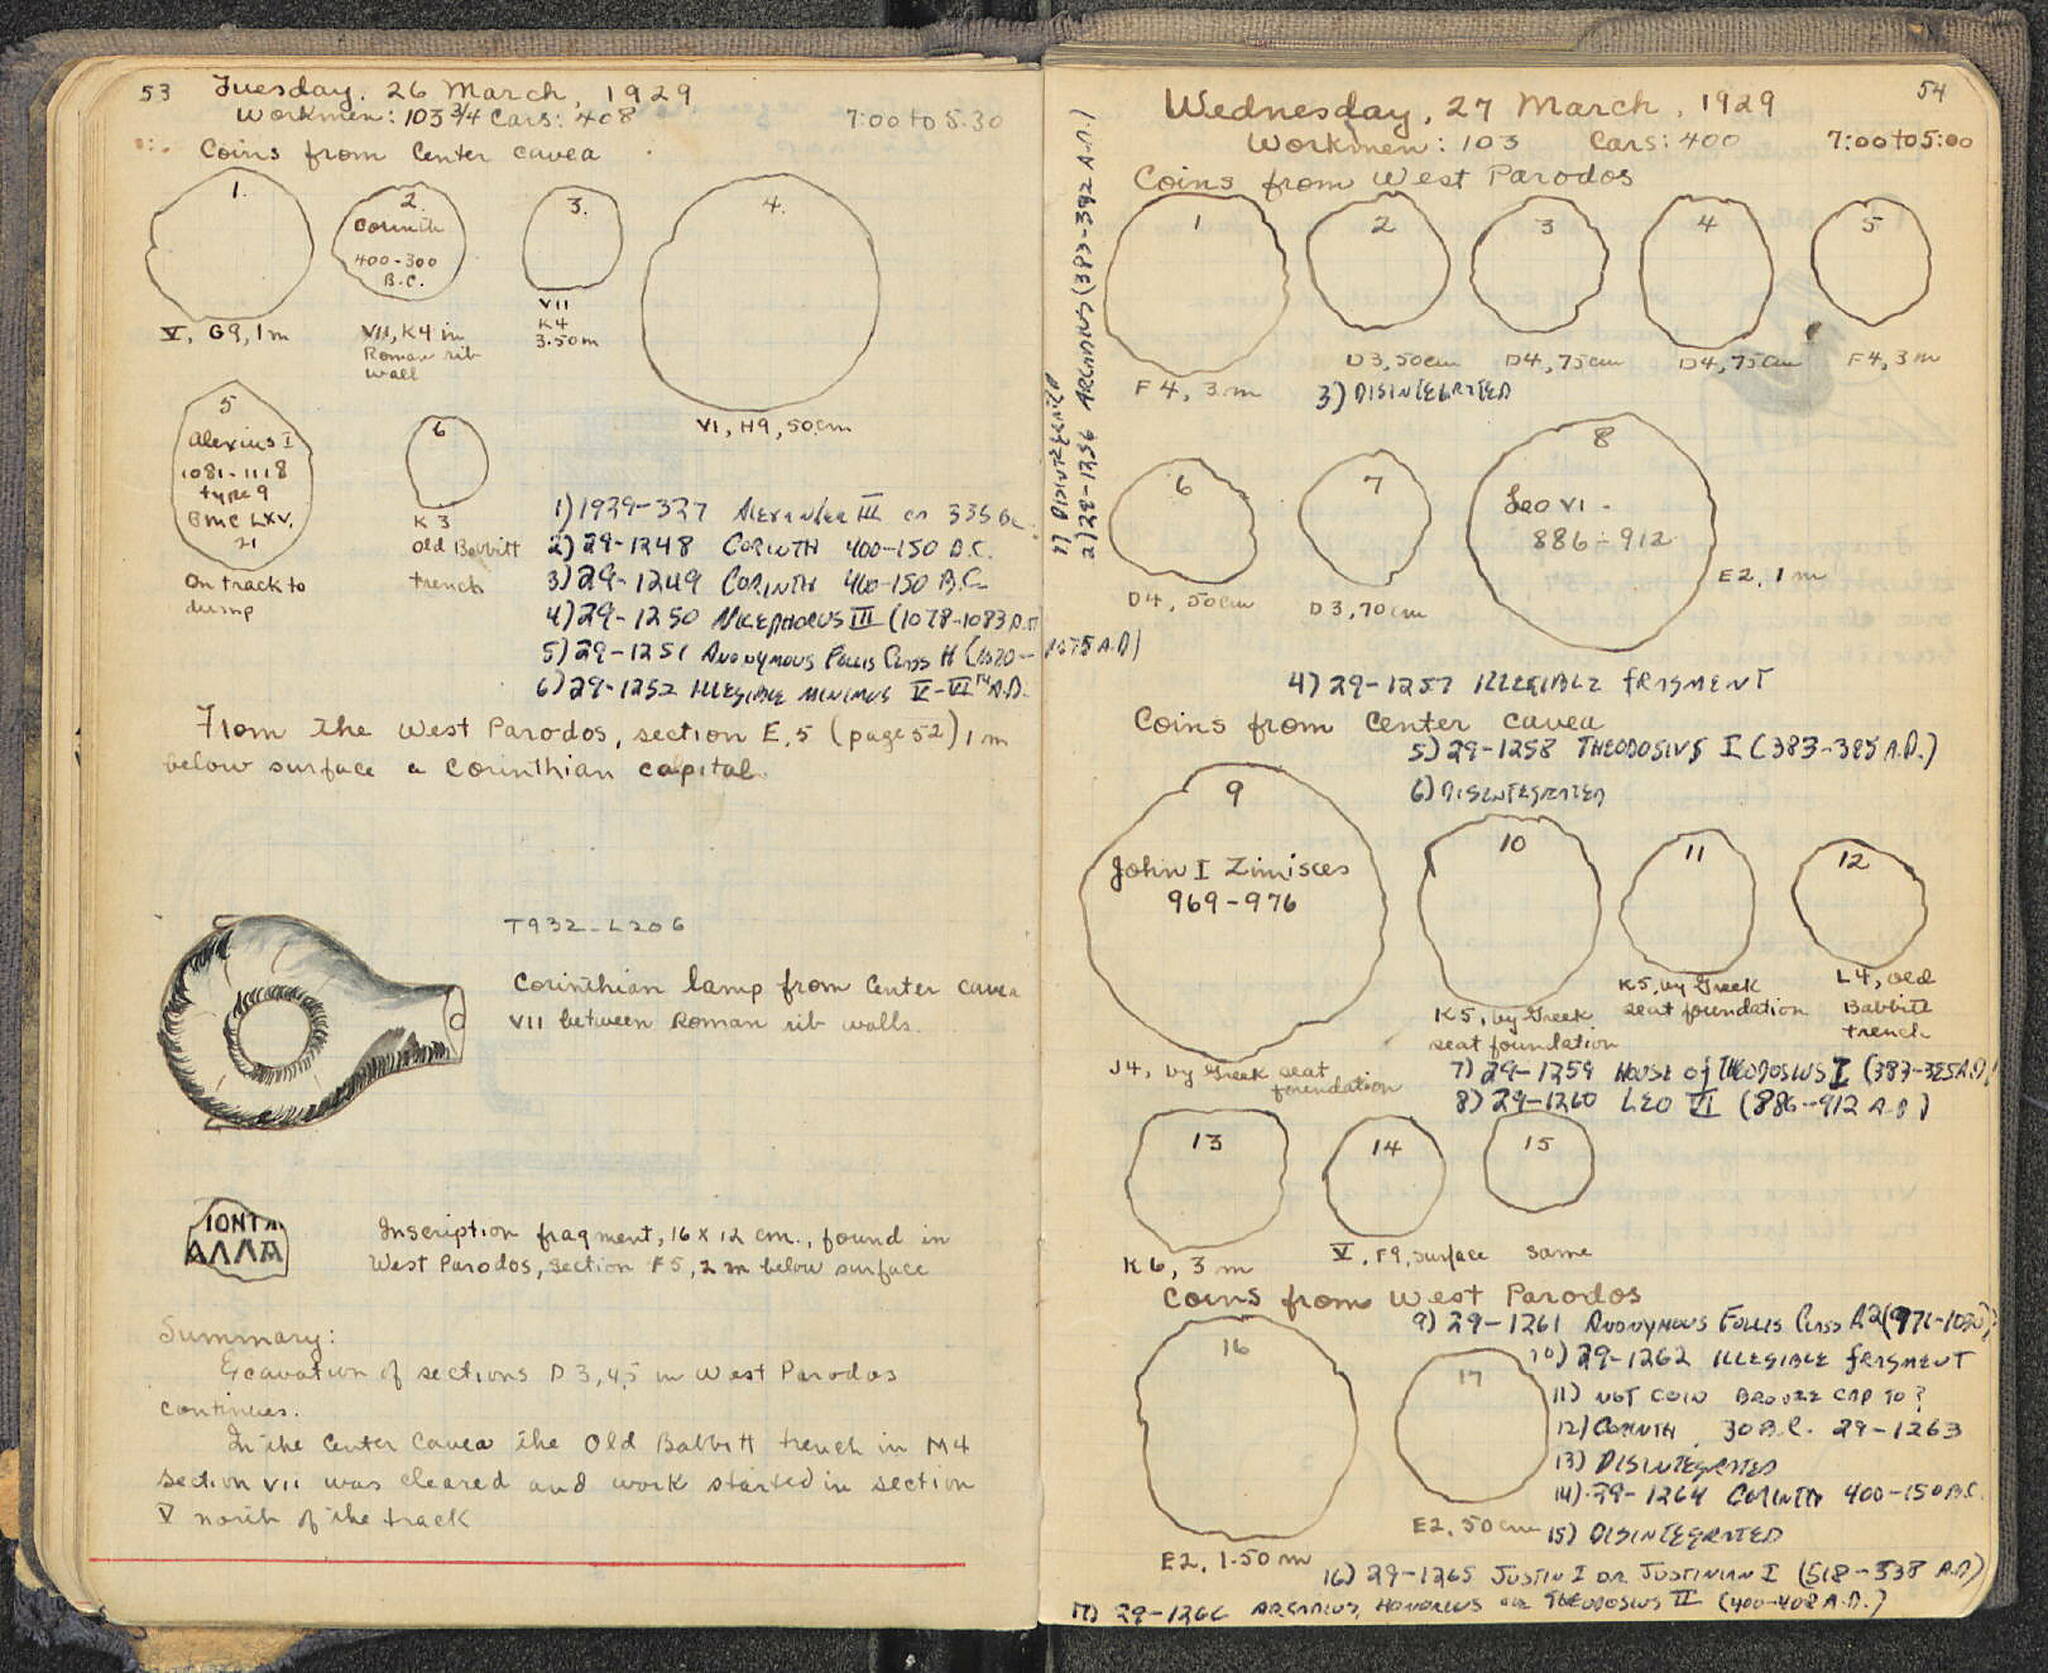 53 Tuesday, 26 March, 1929
Workmen: 103 3/4 Cars: 408 7:00 to 5.30
Coins from Center cavea
1.
V, G9, 1 m
2.
Corinth
400-300
B.C.
VII, K4 in
Roman rib
wall
3.
VII
K4
3.50 m
4.
VI, H9, 50 cm
5
Alexius I
1081-1118
type 9
BMC LXV,
21
On track to
dump
6
K 3
Old Babbitt
trench
1) 1929-327 Alexander III ca 335 BC
2) 29-1248 Corinth 400-150 B.C.
3) 29-1249 Corinth 400-150 B.C.
4) 29-1250 Nicephorus III (1078-1083 A.D.
5) 29-1251 Anonymous Follis Class H (1070-1075 A.D)
6) 29-1252 Illegible minimus V-VIth A.D.
From the West Parodos, section E, 5 (page 52) 1 m
below surface a Corinthian capital.
T932-L206
Corinthian lamp from Center cavea
VII between Roman rib walls.
ΙΟΝΤΑ
ΑΛΛΑ
Inscription fragment, 16 x 12 cm., found in
West Parodos, section F5, 2 m below surface
Summary:
Excavation of sections D 3,4,5 in West Parodos
continues.
In the Center Cavea the Old Babbitt trench in M4
section VII was cleared and work started in section
V north of the track
54
Wednesday, 27 March, 1929
Workmen: 103 Cars: 400 7:00 to 5:00
Coins from West Parodos
1) Disintegrated
2) 29-1256 Arcadius (383-392 A.D.)
1
F 4, 3 m
2
D3, 50cm
3
D4, 75cm
4
D4, 75cm
5
F4, 3 m
3) Disintegrated
6
D4, 50cm
7
D3, 70 cm
8
Leo VI -
886-912
E2, 1 m
4) 29-1257 Illegible fragment
Coins from Center cavea
5) 29-1258 Theodosius I (383-385 A.D.)
6) Disintegrated
9
John I Zimisces
969-976
J4, by Greek seat
foundation
10
K5, by Greek
seat foundation
11
K5, by Greek
seat foundation
12
L4, old
Babbitt
trench
7) 29-1259 House of Theodosius I (383-385 A.D.)
8) 29-1260 Leo VI (886-912 A.D)
13
K6, 3 m
14
V, F9, surface
15
same
Coins from West Parodos
9) 29-1261 Anonymous Follis Class A2 (976-1030)?
16
E2, 1.50 m
17
E2, 50 cm
10) 29-1262 Illegible fragment
11) Not coin Bronze cap to?
12) Corinth 30 B.C. 29-1263
13) Disintegrated
14) 29-1264 Corinth 400-150 B.C.
15) Disintegrated
16) 29-1265 Justin I or Justinian I (518-538 A.D)
17) 29-1266 Arcadius, Honorius or Theodosius II (400-408 A.D.)